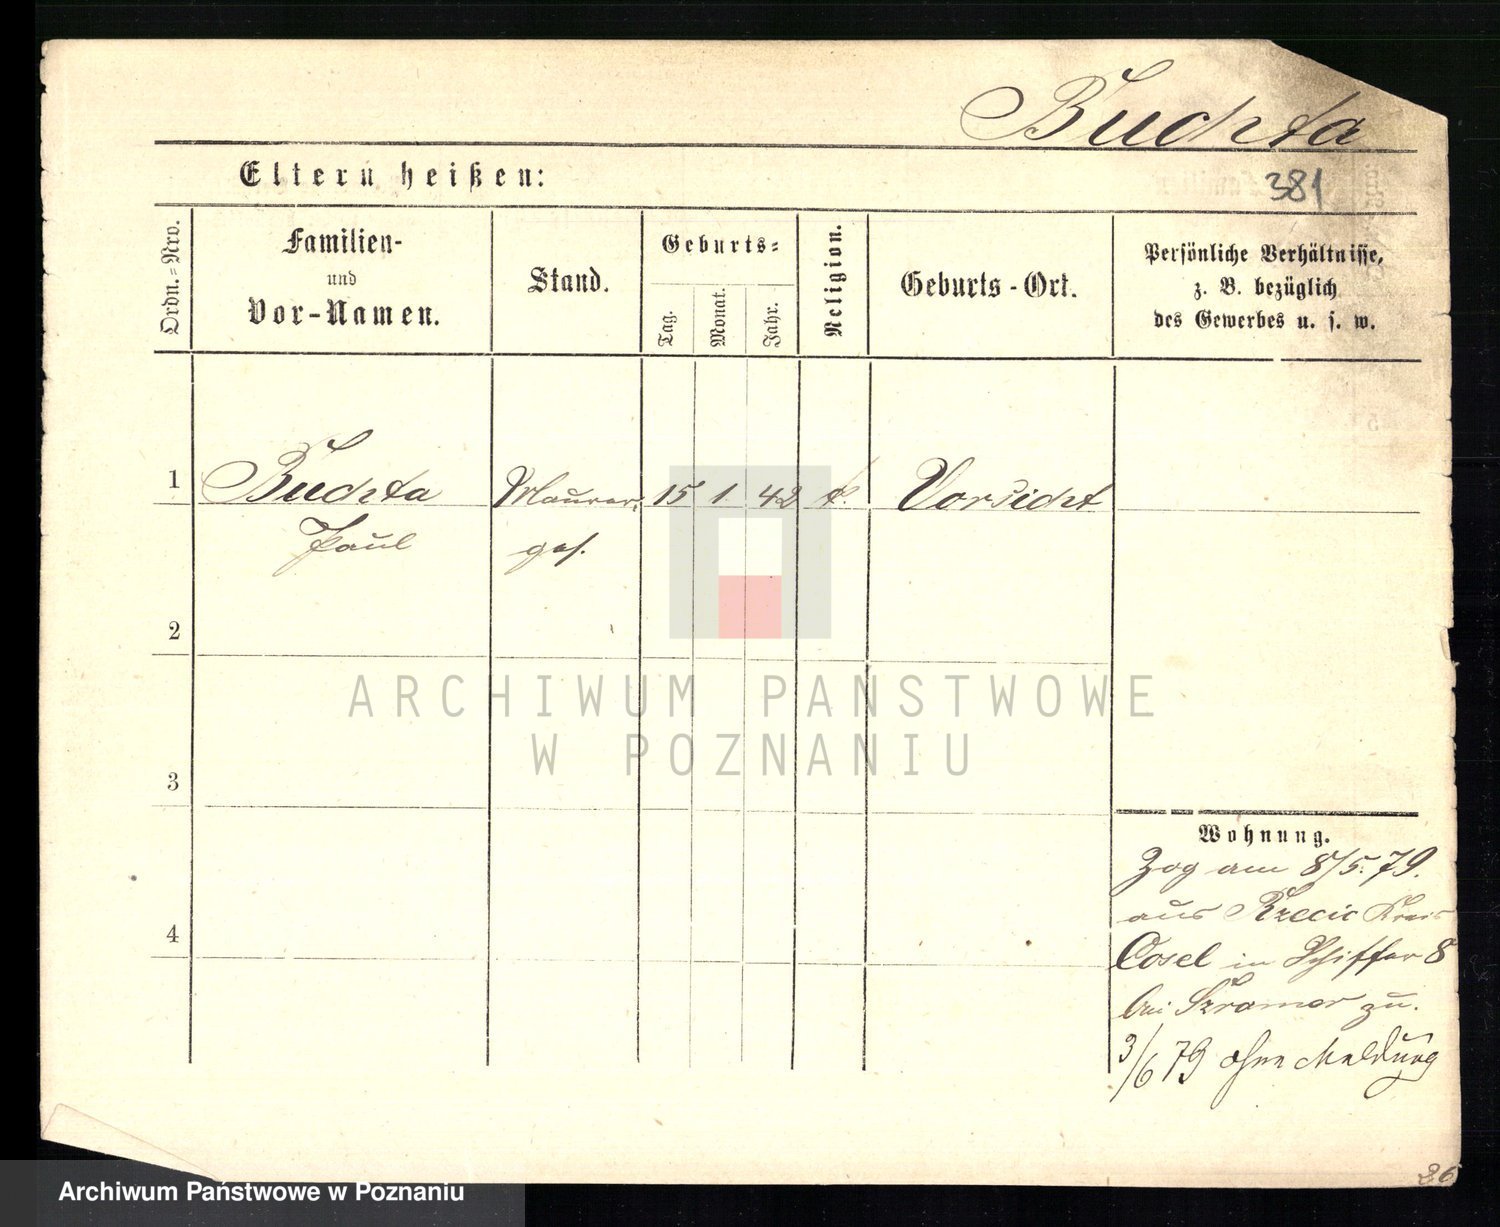 Buchta
Eltern heißen:
381
Ordn.=Nro.
Familien-
und
Vor-Namen.
Stand.
Geburts=
Tag.
Monat.
Jahr.
Religion.
Geburts-Ort.
Persönliche Verhältnisse,
z. B. bezüglich
des Gewerbes u. s. w.
1
Buchta
Maurer,
15
1.
42
k.
Vorsicht
Paul
ges.
2
ARCHIWUM PAŃSTWOWE
W POZNANIU
3
Wohnung.
Zog am 8/5. 79.
aus Rzecic Kreis
4
Cosel in Schiffer 8
bei Szramer zu.
3/6 79 ohne Meldung
Archiwum Państwowe w Poznaniu
86